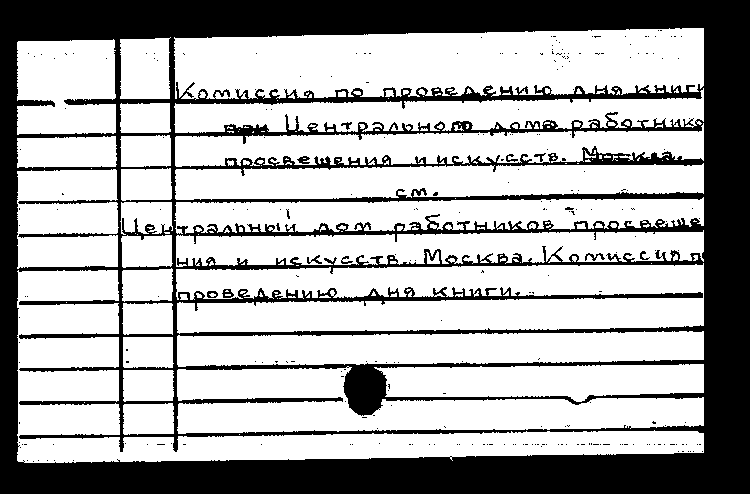 Комиссия по проведению дня книги
при Центрального дома работнико
просвещения и искусств. Москва.
см.
Центральный дом работников просвеще
ния и искусств. Москва. Комиссия по
проведению дня книги.